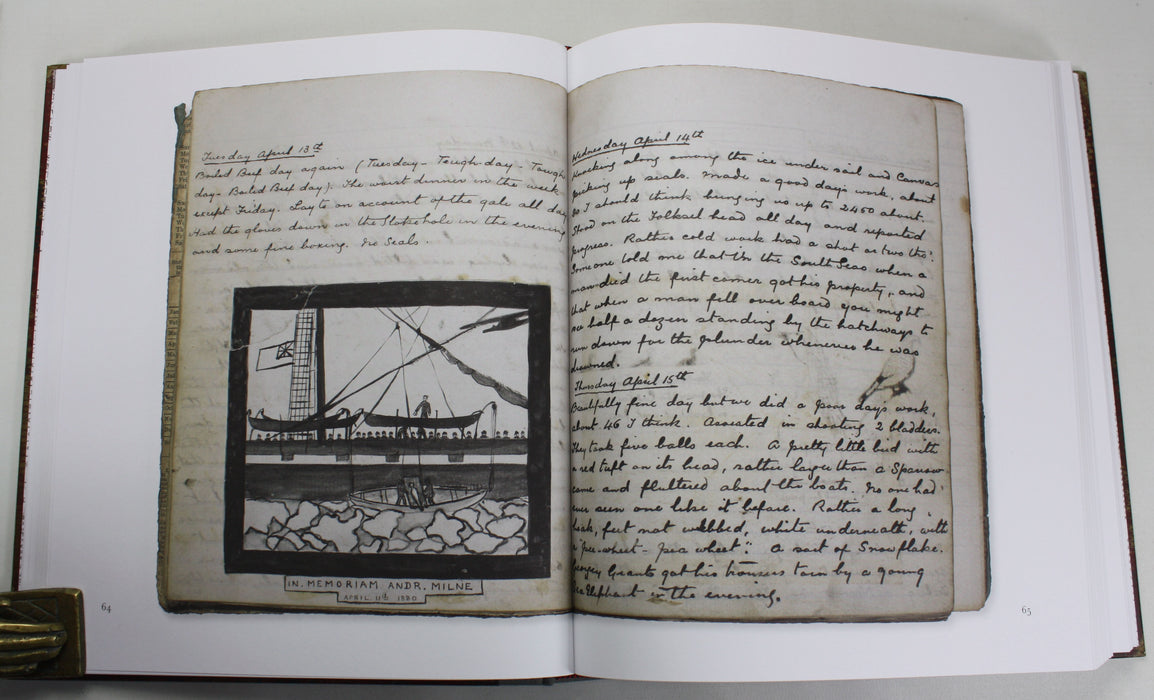 Tuesday April 13th
Boiled Beef day again (Tuesday - Tough-day - Tough
day - Boiled Beef day). The worst dinner in the week
except Friday. Lay to on account of the gale all day
Had the gloves down in the Stokehole in the evening
and some fine boxing. No Seals.
IN MEMORIAM ANDR. MILNE
APRIL 11th 1880
64
Wednesday April 14th
Knocking along among the ice under sail and Canvas
picking up seals. Made a good days work, about
80 I should think bringing us up to 2450 about.
Stood on the Folksell head all day and reported
progress. Rather cold work had a shot or two tho'.
Someone told one that in the South Seas when a
man died the first comer got his property, and
that when a man fell over board you might
see half a dozen standing by the hatchways to
run down for the plunder whenever he was
drowned.
Thursday April 15th
Beautifully fine day but we did a poor days work,
about 46 I think. Assisted in shooting 2 bladders.
They took five balls each. A pretty little bird with
a red tuft on its head, rather larger than a Sparrow
came and fluttered about the boats. No one had
ever seen one like it before. Rather a long
beak, feet not webbed, white underneath, with
a "pee-wheet - pea wheet". A sort of Snowflake.
Georgey Grants got his trousers torn by a young
Sea Elephant in the evening.
65